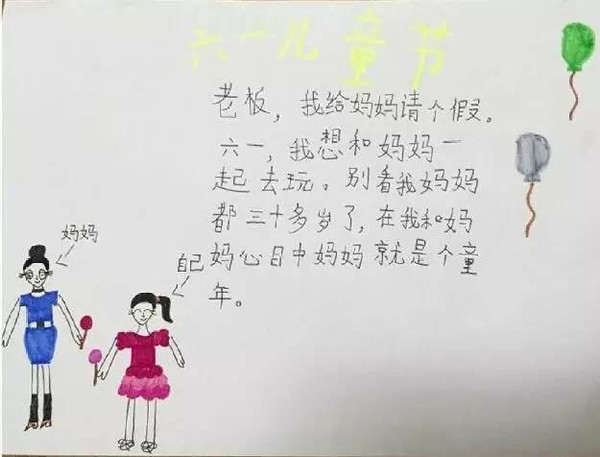 六一儿童节
老板，我给妈妈请个假。
六一，我想和妈妈一
起去玩。别看我妈妈
都三十多岁了，在我和妈
妈心目中妈妈就是个童
年。
妈妈
自己